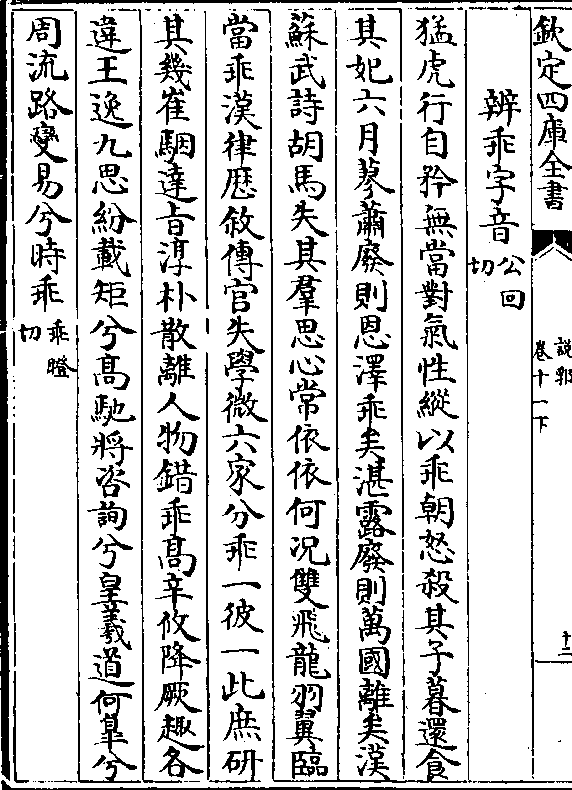 欽定四庫全書
說郛
卷十一下
十二
辨乖字音公回切
猛虎行自矜無當對氣性縱以乖朝怒殺其子暮還食
其妃六月蓼蕭廢則恩澤乖矣湛露廢則萬國離矣漢
蘇武詩胡馬失其羣思心常依依何况雙飛龍羽翼臨
當乖漢律歷敘傳官失學微六家分乖一彼一此庶研
其幾崔駰達㫖淳朴散離人物錯乖髙辛攸降厥趣各
違王逸九思紛載矩兮髙馳將咨詢兮皇羲道何臯兮
周流路變易兮時乖乖瞪切